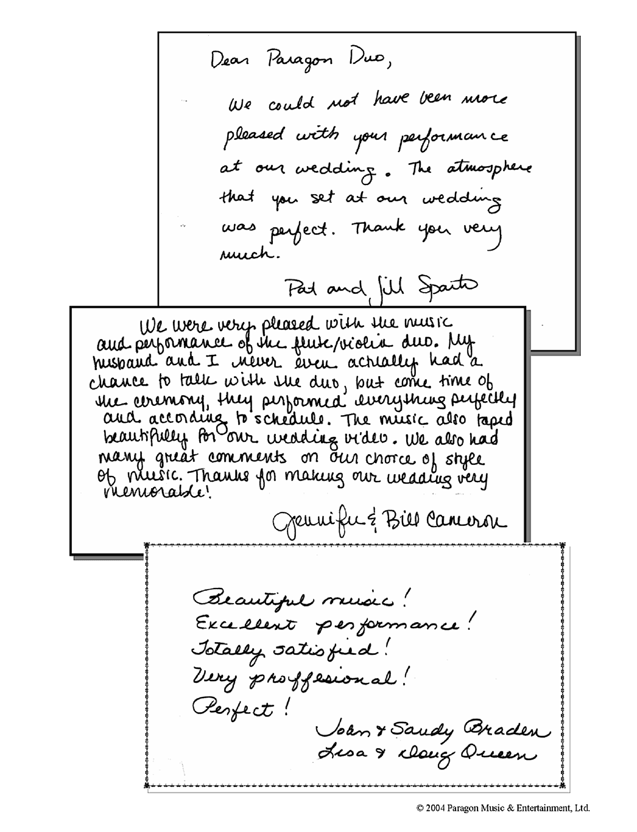 Dear Paragon Duo,
We could not have been more
pleased with your performance
at our wedding. The atmosphere
that you set at our wedding
was perfect. Thank you very
much.
Pat and Jill
We were very pleased with the music
and performance of the flute/violin duo. My
husband and I never even actually had a
chance to talk with the duo, but come time of
the ceremony, they performed everything perfectly
and according to schedule. The music also taped
beautifully for our wedding video. We also had
many great comments on our choice of style
of music. Thanks for making our wedding very
memorable!
Jennifer & Bill Cameron
Beautiful music!
Excellent performance!
Totally satisfied!
Very proffesional!
Perfect!
John & Sandy Braden
Lisa & Doug Queen
© 2004 Paragon Music & Entertainment, Ltd.